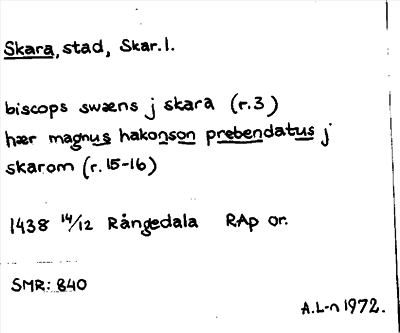 Skara, stad, Skar. l.
biscops swæns j skara (r.3)
hær magnus hakonson prebendatus j
skarom (r.15-16)
1438 14/12 Rångedala RAp or.
SMR: 840
A.L-n 1972.